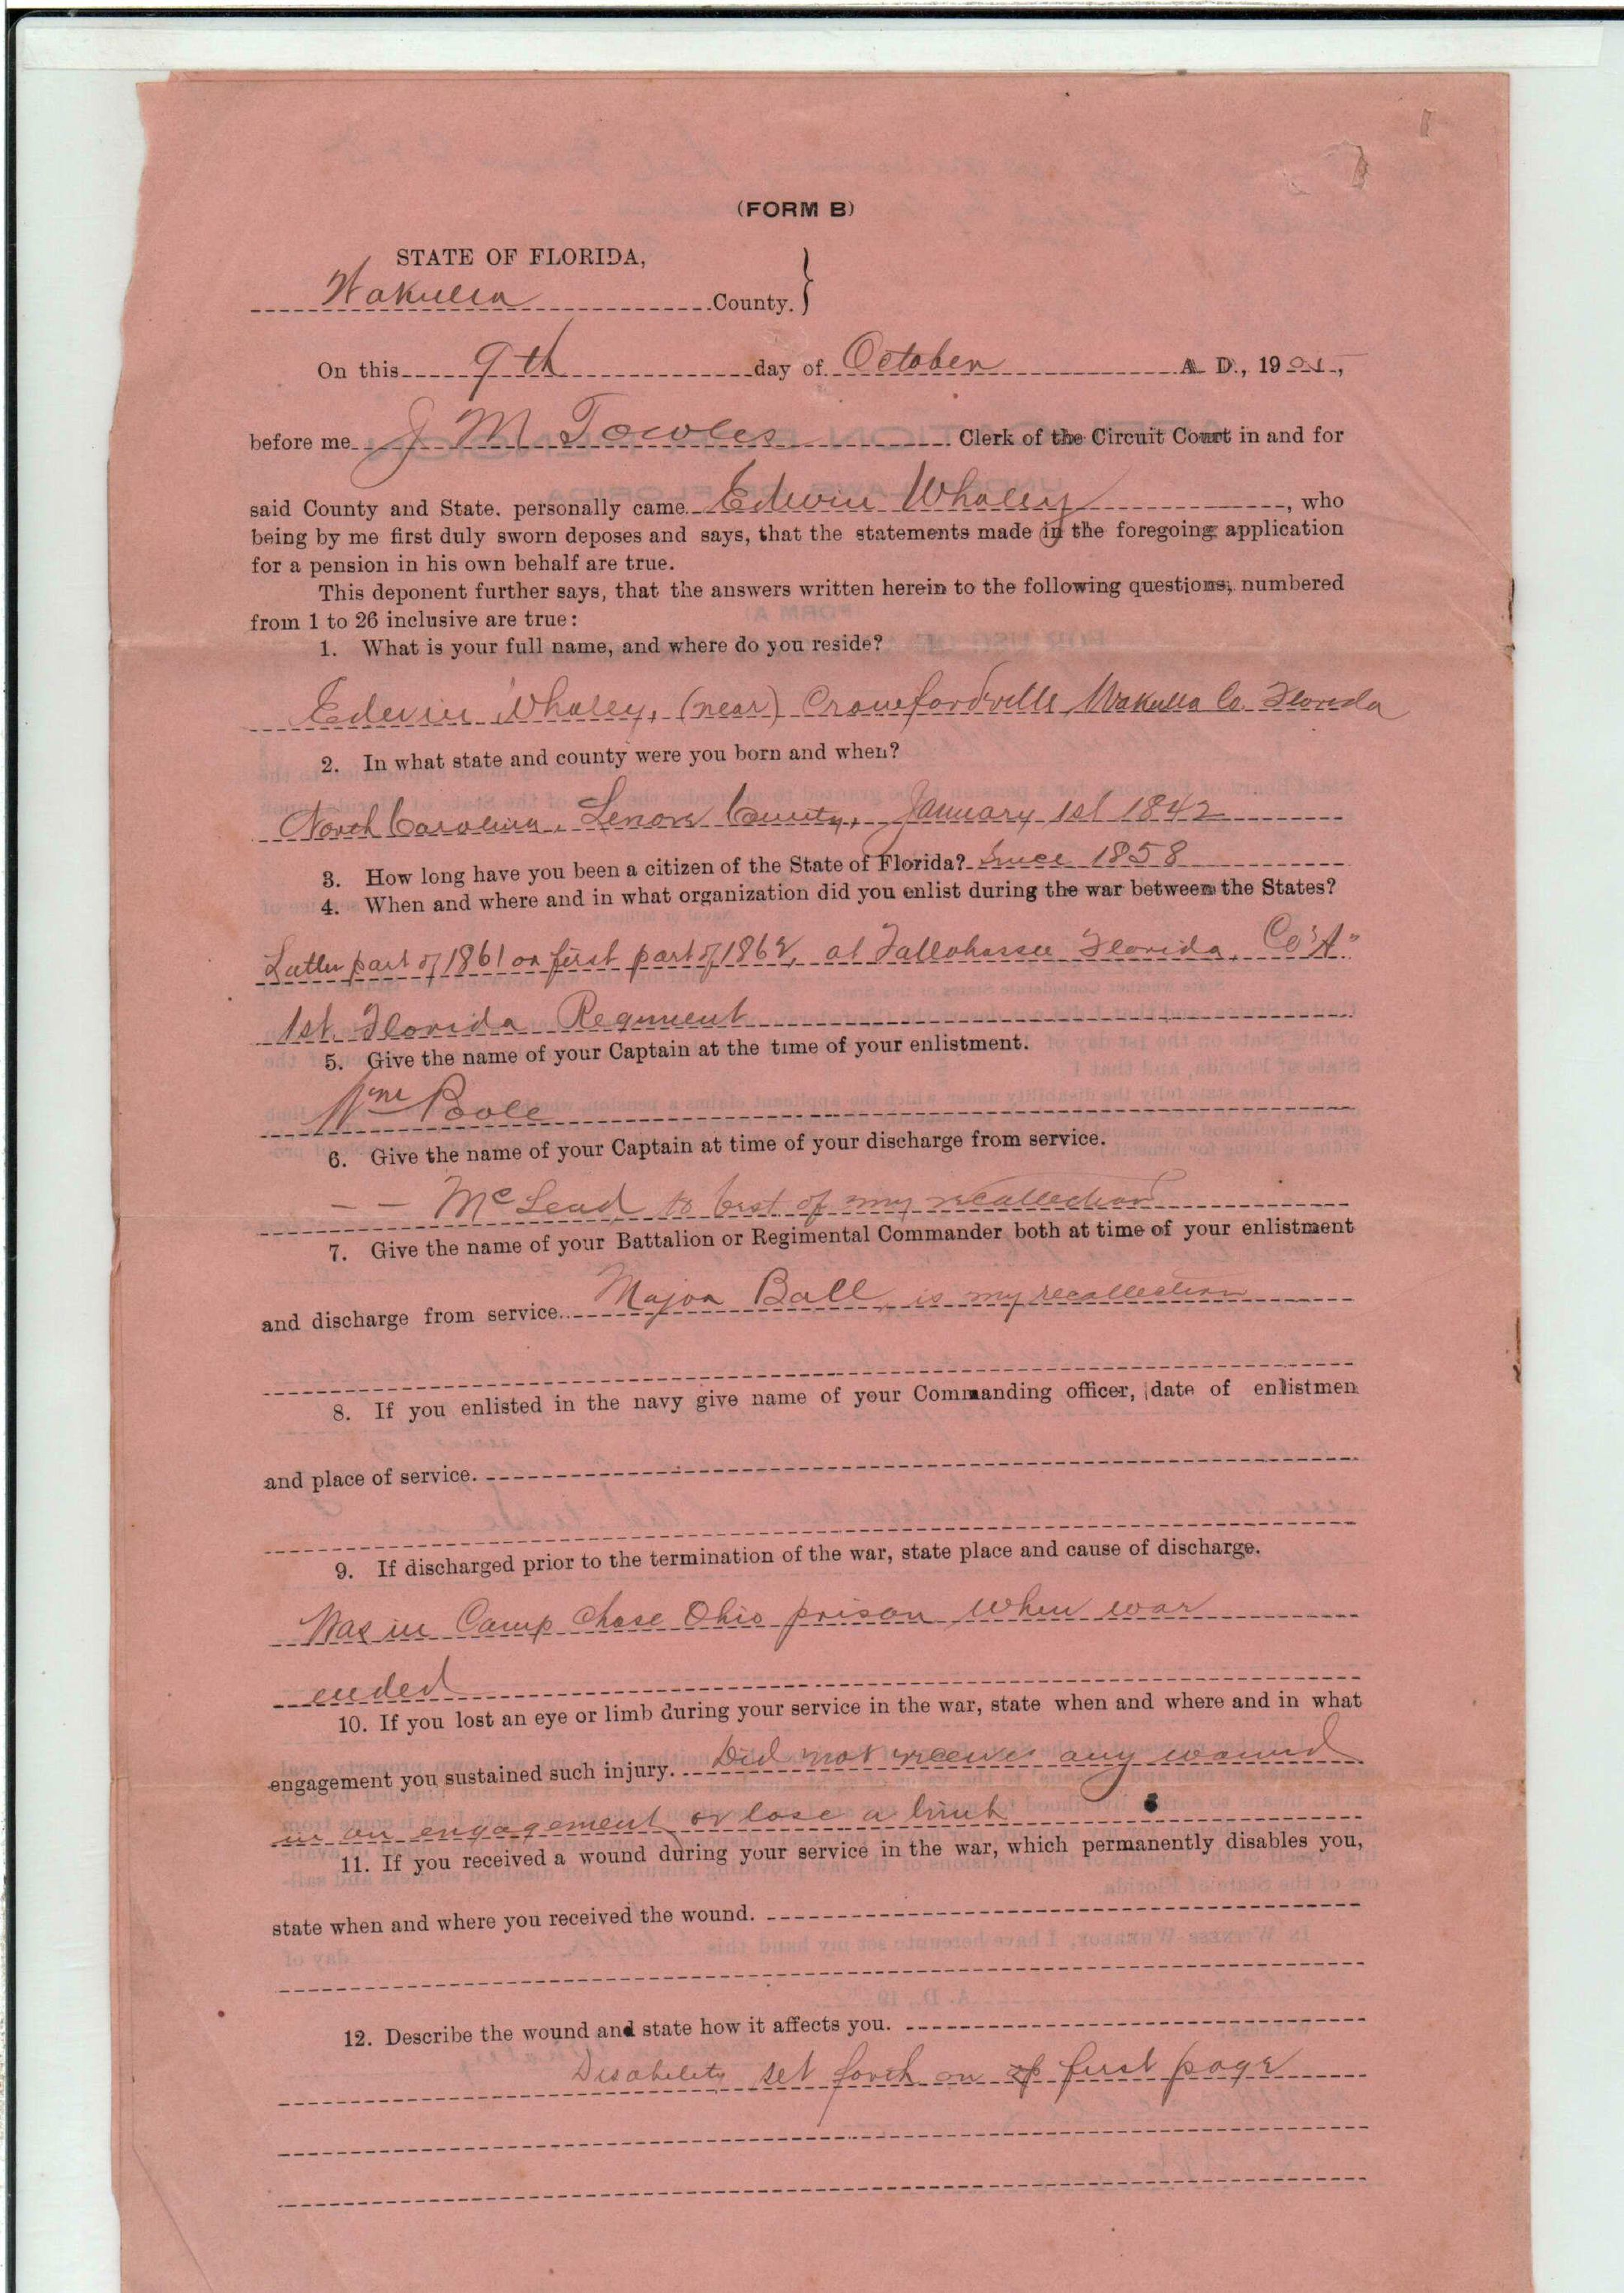 (FORM B)
STATE OF FLORIDA,
Wakulla County.
On this 9th day of October A. D., 1901,
before me J M Towles Clerk of the Circuit Court in and for
said County and State. personally came Edwin Whaley, who
being by me first duly sworn deposes and says, that the statements made in the foregoing application
for a pension in his own behalf are true.
This deponent further says, that the answers written herein to the following questions, numbered
from 1 to 26 inclusive are true:
1. What is your full name, and where do you reside?
Edwin Whaley, (near) Crawfordville Wakulla Co. Florida
2. In what state and county were you born and when?
North Carolina, Lenore County, January 1st 1842
3. How long have you been a citizen of the State of Florida? Since 1858
4. When and where and in what organization did you enlist during the war between the States?
Latter part of 1861 or first part of 1862, at Tallahassee Florida, Co "A"
1st Florida Regiment
5. Give the name of your Captain at the time of your enlistment.
Wm Poole
6. Give the name of your Captain at time of your discharge from service.
— — McLead to best of my recallection
7. Give the name of your Battalion or Regimental Commander both at time of your enlistment
and discharge from service. Major Ball, is my recallection
8. If you enlisted in the navy give name of your Commanding officer, date of enlistmen
and place of service.
9. If discharged prior to the termination of the war, state place and cause of discharge.
Was in Camp Chase Ohio prison when war
ended
10. If you lost an eye or limb during your service in the war, state when and where and in what
engagement you sustained such injury. Did not receive any wound
in an engagement or lose a limb
11. If you received a wound during your service in the war, which permanently disables you,
state when and where you received the wound.
12. Describe the wound and state how it affects you.
Disability set forth on first page